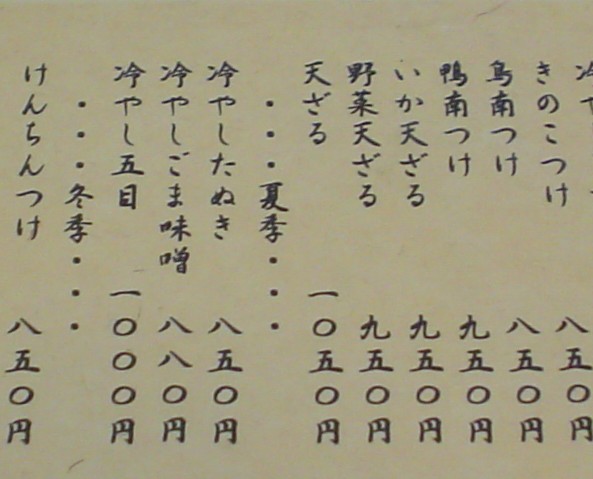 冷や 八五〇円
きのこつけ 八五〇円
鳥南つけ 九五〇円
鴨南つけ 九五〇円
いか天ざる 九五〇円
野菜天ざる 九五〇円
天ざる 一〇五〇円
・・・夏季・・・
冷やしたぬき 八五〇円
冷やしごま味噌 八八〇円
冷やし五目 一〇〇〇円
・・・冬季・・・
けんちんつけ 八五〇円